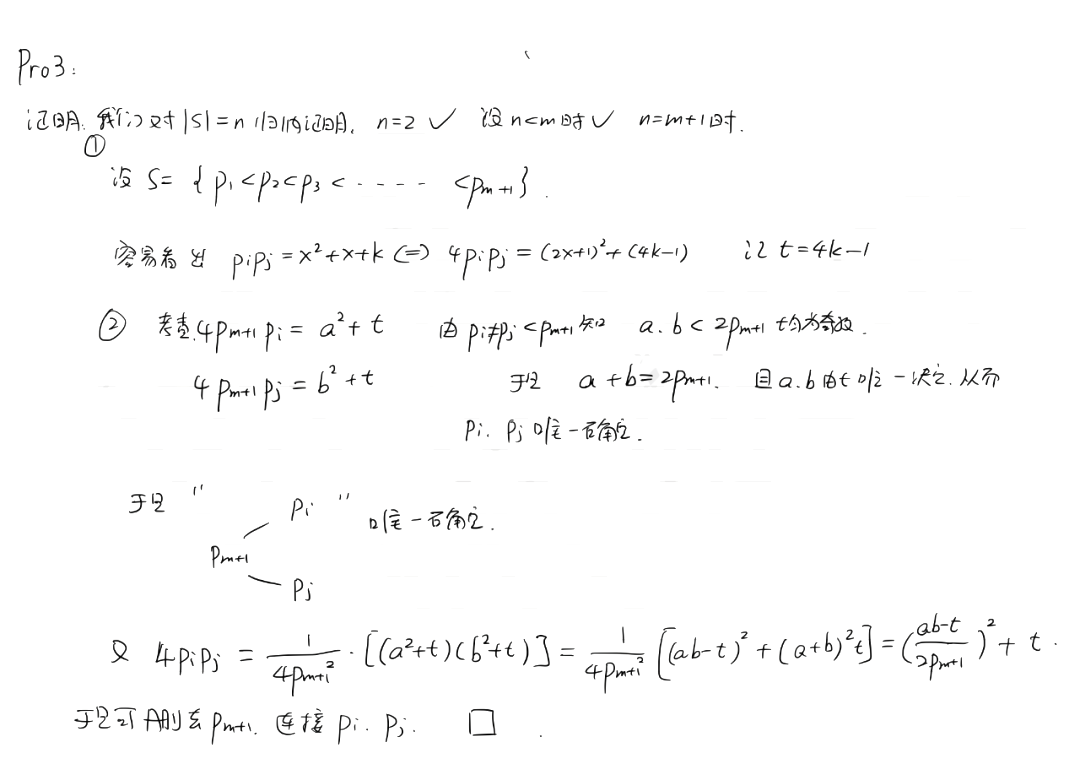 Pro3:
证明: 我们对 |S|=n 归纳证明, n=2 ✓ 设 n<m 时 ✓ n=m+1 时.
① 设 S= { p₁<p₂<p₃< ‑ ‑ ‑ ‑ ‑ <pₘ₊₁} .
容易看出 pᵢpⱼ = x²+x+k (=) 4pᵢpⱼ = (2x+1)²+(4k-1) 记 t=4k-1
② 考查.4pₘ₊₁ pᵢ = a²+t 由 pᵢ≠pⱼ<pₘ₊₁ 知 a. b < 2pₘ₊₁ 均为奇数.
4 pₘ₊₁ pⱼ = b²+t 于是 a+b=2pₘ₊₁. 且 a.b 由 t 唯一决定. 从而
pᵢ. pⱼ 唯一确定.
于是 " pᵢ " 唯一确定.
pₘ₊₁
pⱼ
又 4pᵢpⱼ = 1/(4pₘ₊₁²) · [(a²+t)(b²+t)] = 1/(4pₘ₊₁²) [(ab-t)²+(a+b)²t] = ((ab-t)/(2pₘ₊₁))² + t .
于是可删去 pₘ₊₁. 连接 pᵢ. pⱼ. □ .